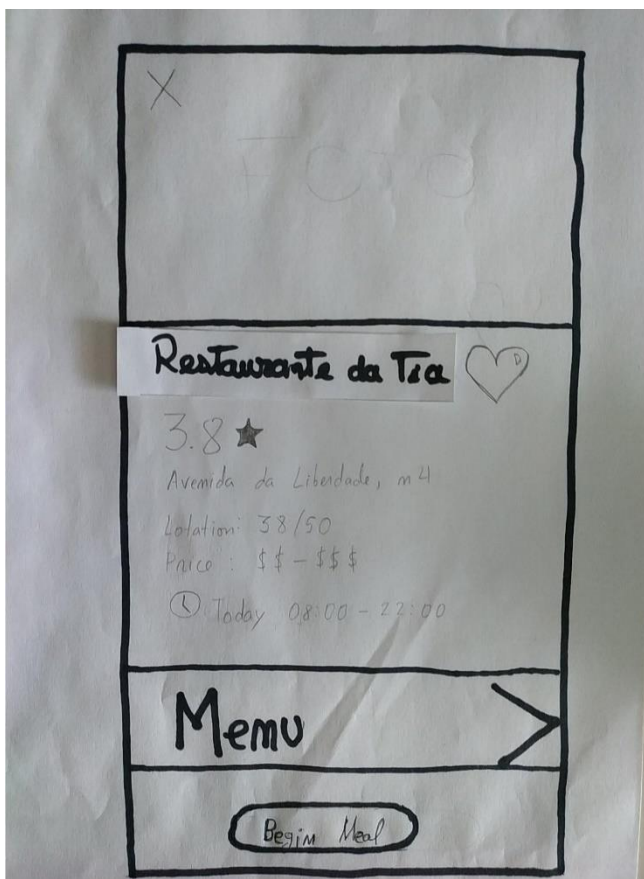 X
FOTO
Restaurante da Tia
3.8 ★
Avenida da Liberdade, nº4
Lotation: 38/50
Price: $$ - $$$
Today 08:00 - 22:00
Menu >
Begin Meal